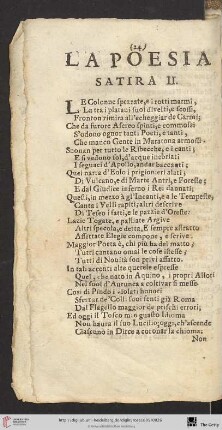 (24)
LA POESIA
SATIRA II.
LE Colonne spezzate, e i rotti marmi,
Là tra i platani suoi divelti, e scossi,
Fronton rimira all'echeggiar de Carmi;
Che da furore Ascreo spinti, e commossi
S'odono ognor tanti Poeti, e tanti,
Che manco Gente in Maratona armossi.
Suonan per tutto le Ribecche, e i canti;
E si vedono sol, d'acque inebriati
I seguaci d'Apollo, andar baccanti;
Quei narra d'Eolo i prigionieri alati;
Di Vulcano, e di Marte Antri, e Foreste;
E dal Giudice inferno i Rei dannati;
Questi, in mezzo à gl'Incanti, e le Tempeste,
Canta i Velli rapiti; altri descrive
Di Teseo i fatti, e le pazzie d'Oreste:
Lazie Togate, e palliate Argive
Altri specola, e detta, E sempre astratto
Affettate Elegie compone, e scrive.
Maggior Poeta è, chi più ha del matto,
Tutti cantano omai le cose istesse,
Tutti di Novità son privi affatto.
In tali accenti alte querele espresse
Quel, che nato in Aquino, i propri Allori
Nel suol d'Aurunca a coltivar si messe.
Così di Pindo i violati honori
Sferzar de' Colli suoi sentì già Roma
Dal Flagello maggior de prischi errori;
Ed oggi il Tosco mio guasto Idioma
Non haurà il suo Lucilio, oggi, ch'ascende
Ciascuno in Dirce a coronar la chioma:
Non
The Getty